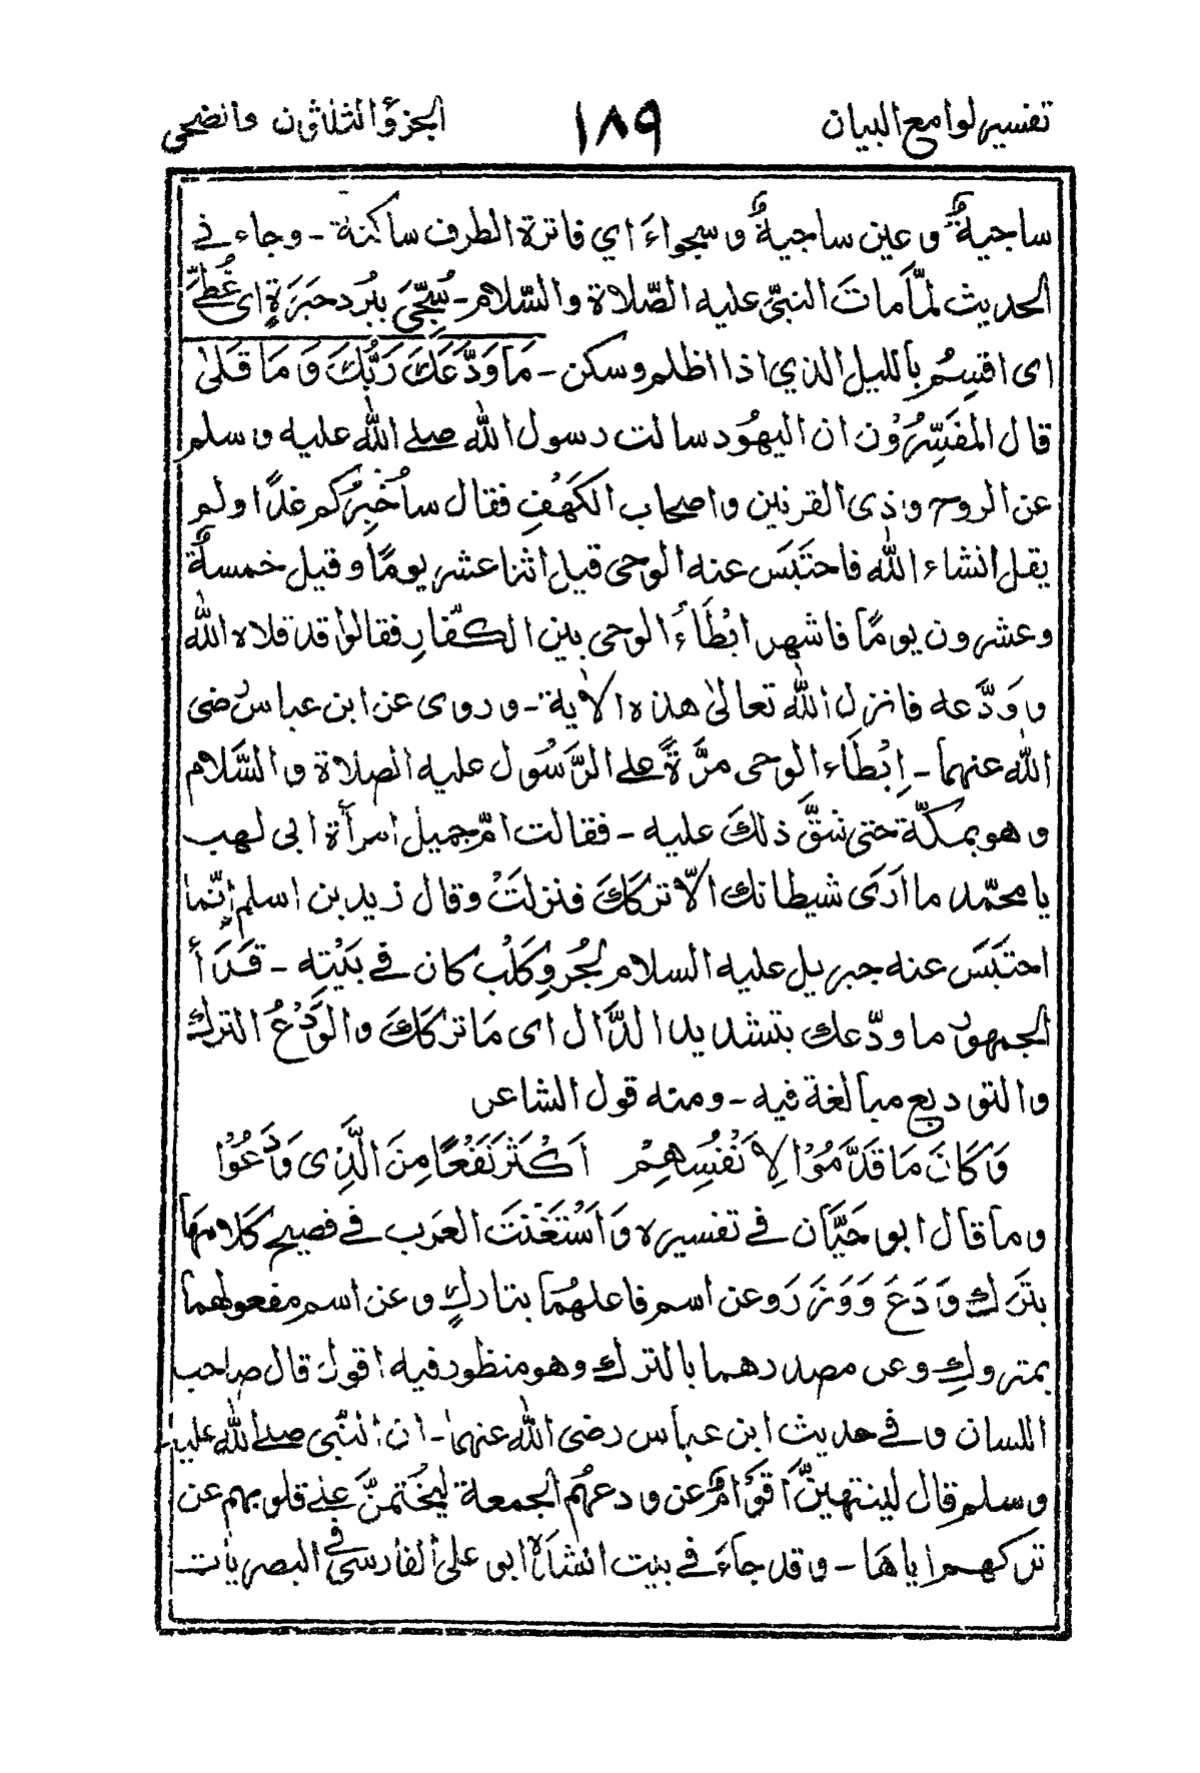 تفسير لوامع البيان ١٨٩ الجزؤ الثلاثون والضحى
ساجيةٌ وعين ساجيةٌ وسجواءَ اي فاترة الطرف ساكنة - وجاء في
الحديث لمَّا مَاتَ النبيّ عليه الصّلاة والسّلام - سُجِّيَ ببُرد حبَرَةٍ اى غُطِّيَ
اى اقسِمُ بالليل الذي اذا اظلم وسكن - مَا وَدَّعَكَ رَبُّكَ وَ مَا قَلىٰ
قال المفَسِّرُوْن ان اليهُود سالت رسول الله صلے الله عليه وسلم
عن الروح وذى القرنين واصحاب الكَهْفِ فقال ساُخْبِرُكم غدًا ولم
يقل انشاء الله فاحتَبَسَ عنه الوحى قيل اثنا عشر يومًا وقيل خمسةٌ
وعشرون يومًا فاشهر ابْطَأءُ الوحى بين الكفّارِ فقالوا قد قلاه الله
ووَدَّعه فانزل الله تعالىٰ هذه الاٰية - وروى عن ابن عباس رضى
الله عنهما - اِبْطَاء الوحى مرَّةً على الرَّسُول عليه الصلاة والسَّلام
وهو بمكّة حتى شقَّ ذلكَ عليه - فقالت امّ جميل امرأة ابى لهب
يا محمّد ما اَرَى شيطانك الاّ تركَكَ فنزلَتْ وقال زيد بن اسلم اِنّما
احتَبَسَ عنه جبريل عليه السلام لجُروِكَلْب كان في بَيْتِه - قَرَأَ
الجمهورُ ما ودّعك بتشديد الدَّال اى مَا تركَكَ والوَدْعُ الترك
والتوديع مبالغة فيه - ومنه قول الشاعر
وَكَانَ مَا قَدَّمُوْا لِاَنْفُسِهِمْ اَكْثَرَ نَفْعًا مِنَ الَّذِى وَدَعُوْا
وما قال ابو حَيَّان في تفسيره وَاسْتَغْنَتَ العَرَب في فصيح كَلامِهَا
بتَرَكَ وَدَعَ وَوَزَرَ وعن اسم فاعلهُمَا بتاركٍ وعن اسم مفعولهما
بمتروكٍ وعن مصدرهما بالترك وهو منظور فيه اقول قال صاحب
اللسان وفي حديث ابن عباس رضى الله عنهما - ان النّبى صلے الله عليه
وسلم قال لينتهينَّ اَقوَامٌ عن ودعهُم الجمعة ليُختمنَّ على قلوبهم عن
تركهم اياهَا - وقد جاءَ في بيت انشده ابو على الفارسى في البصريات